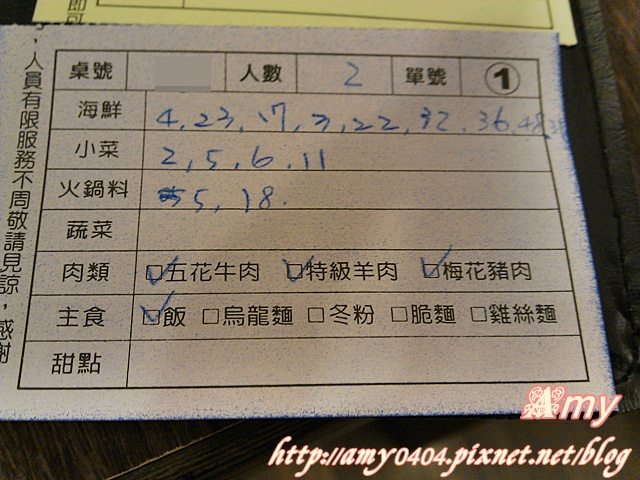 人員有限服務不周敬請見諒，感謝
桌號 人數 2 單號 ①
海鮮 4, 23, 17, 3, 22, 32, 36, 48,
小菜 2, 5, 6, 11
火鍋料 5, 18.
蔬菜
肉類 ☑五花牛肉 ☑特級羊肉 ☑梅花豬肉
主食 ☑飯 □烏龍麵 □冬粉 □脆麵 □雞絲麵
甜點
Amy
http://amy0404.pixnet.net/blog